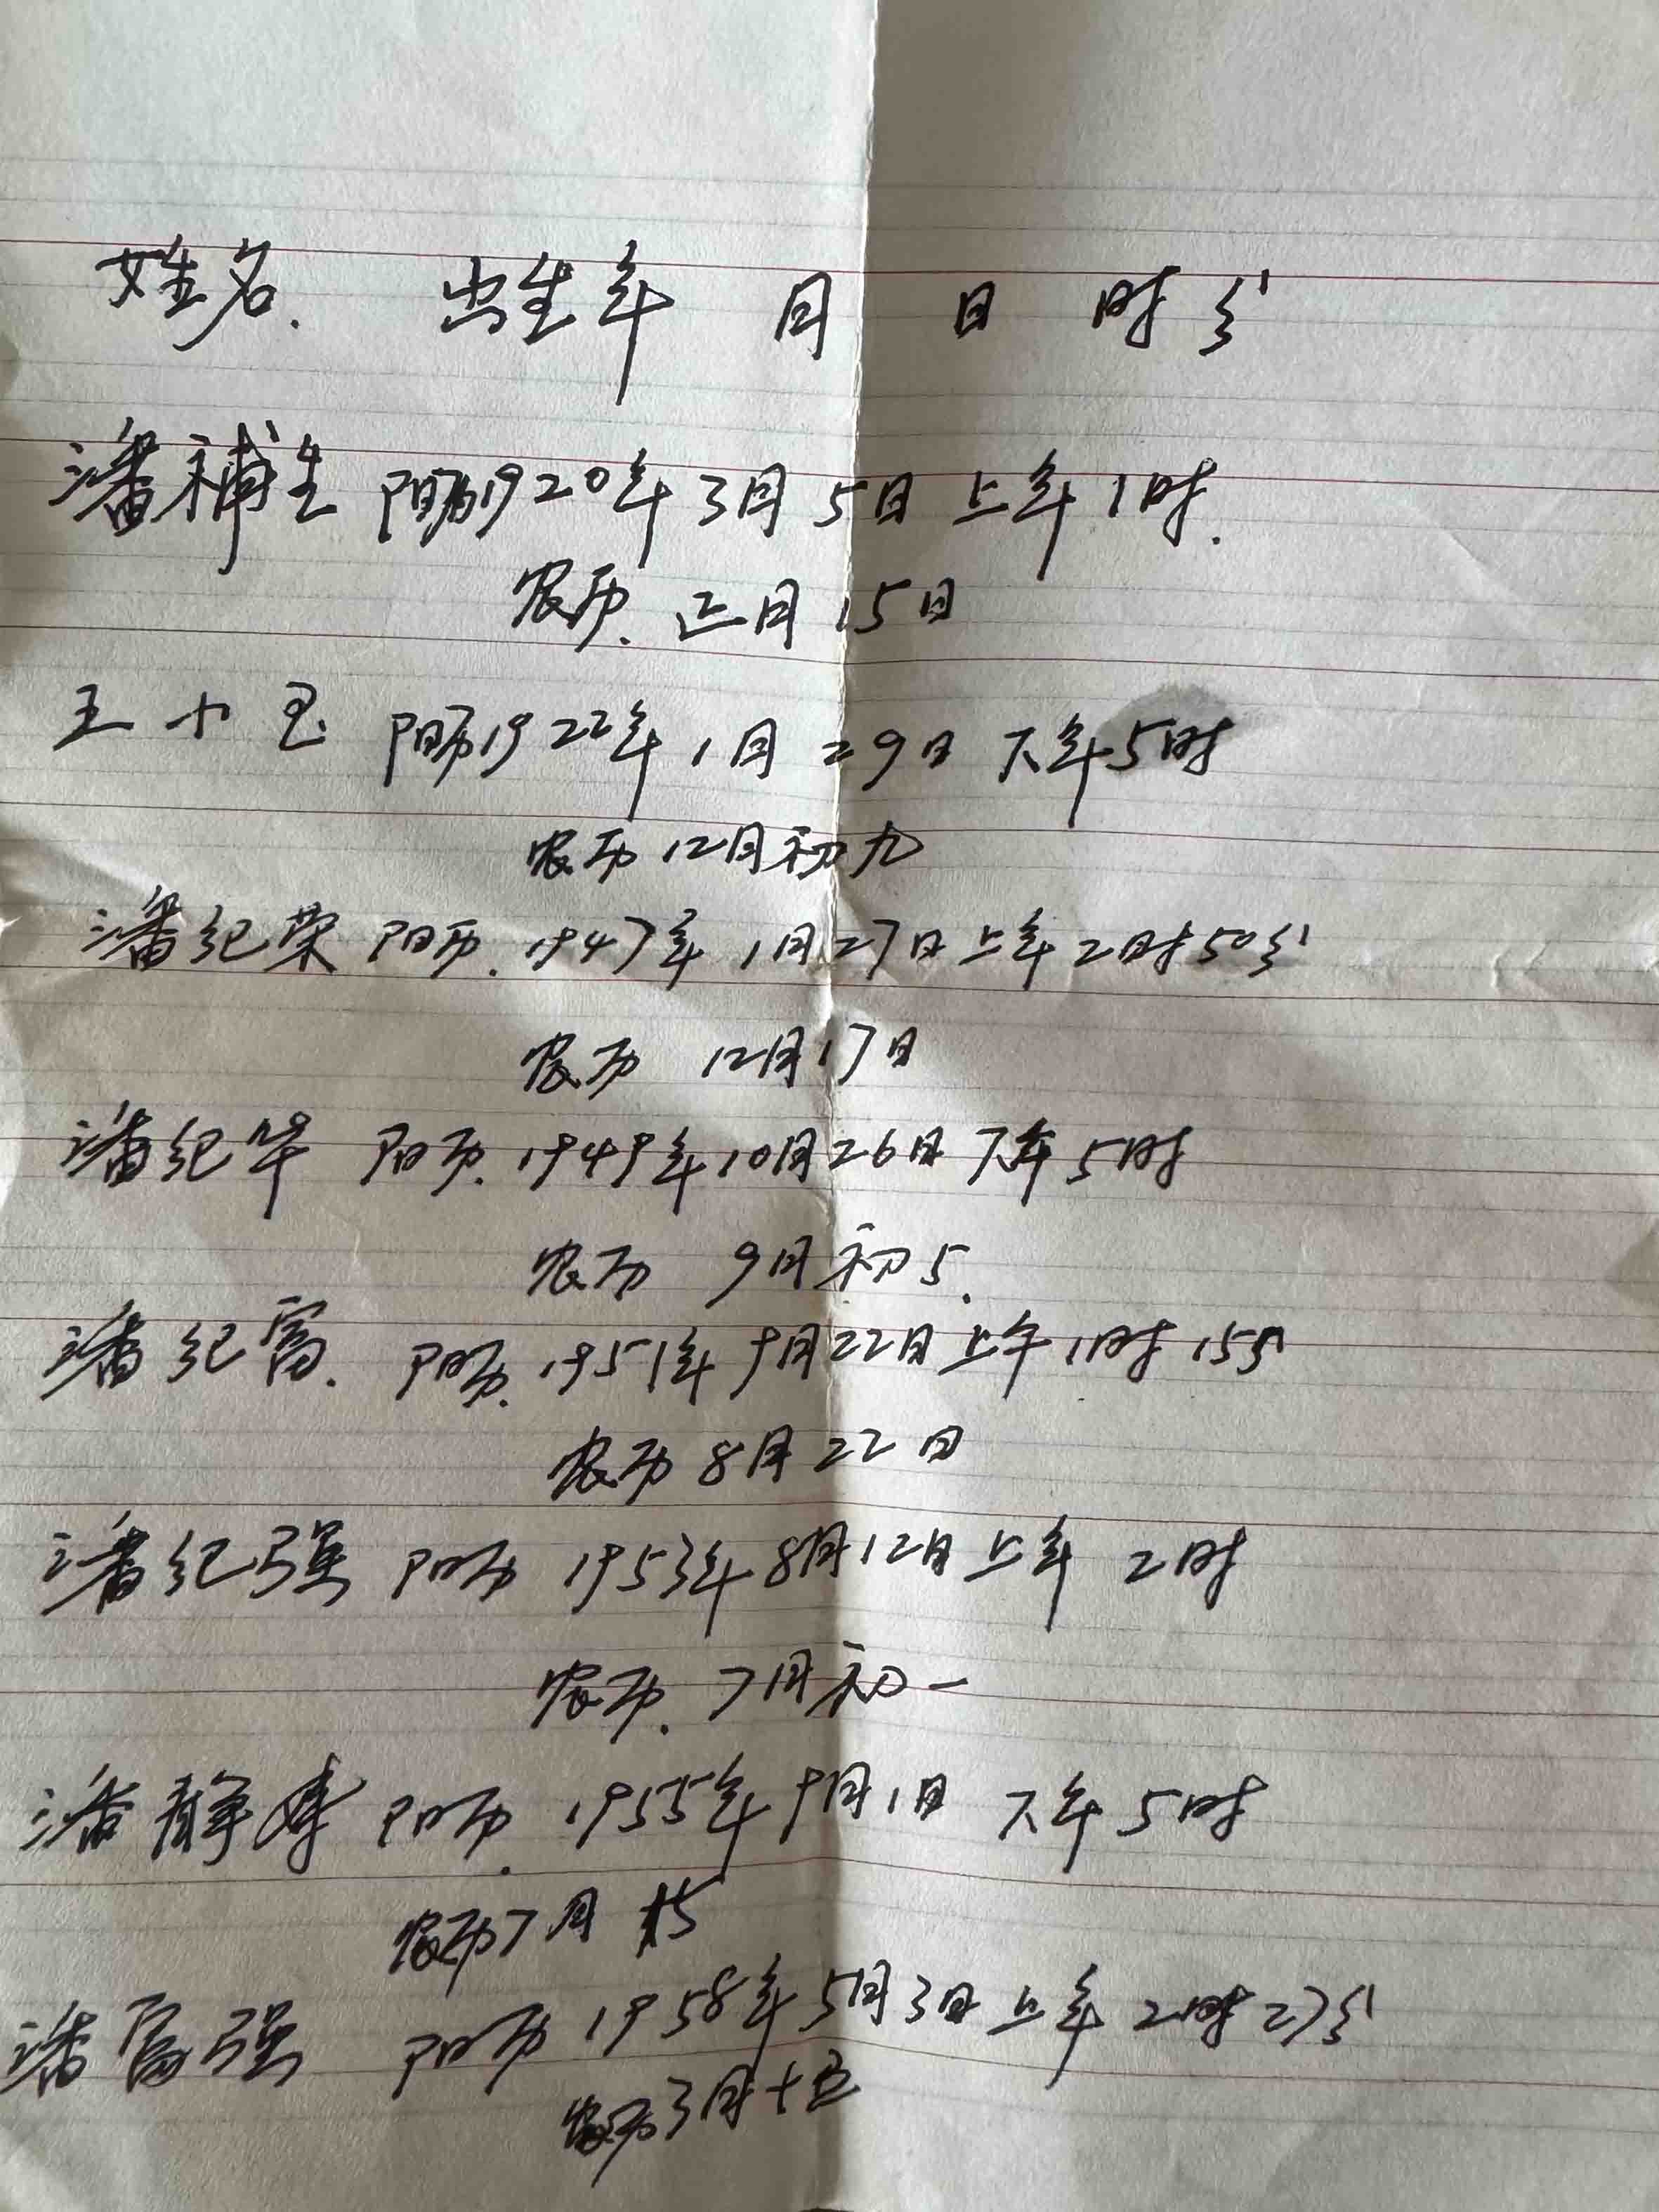 姓名. 出生年 月 日 时分
潘補生 阳历1920年3月5日上午1时.
农历. 正月15日
王小玉 阳历1922年1月29日下午5时
农历12月初九
潘纪荣 阳历.1947年1月27日上午2时50分
农历 12月17日
潘纪华 阳历.1949年10月26日下午5时
农历 9月初5.
潘纪富. 阳历.1951年9月22日上午1时15分
农历8月22日
潘纪强 阳历 1953年8月12日上午2时
农历.7月初一
潘静 阳历.1955年9月1日 下午5时
农历7月15
潘富强 阳历1958年5月3日上午2时27分
农历3月十五